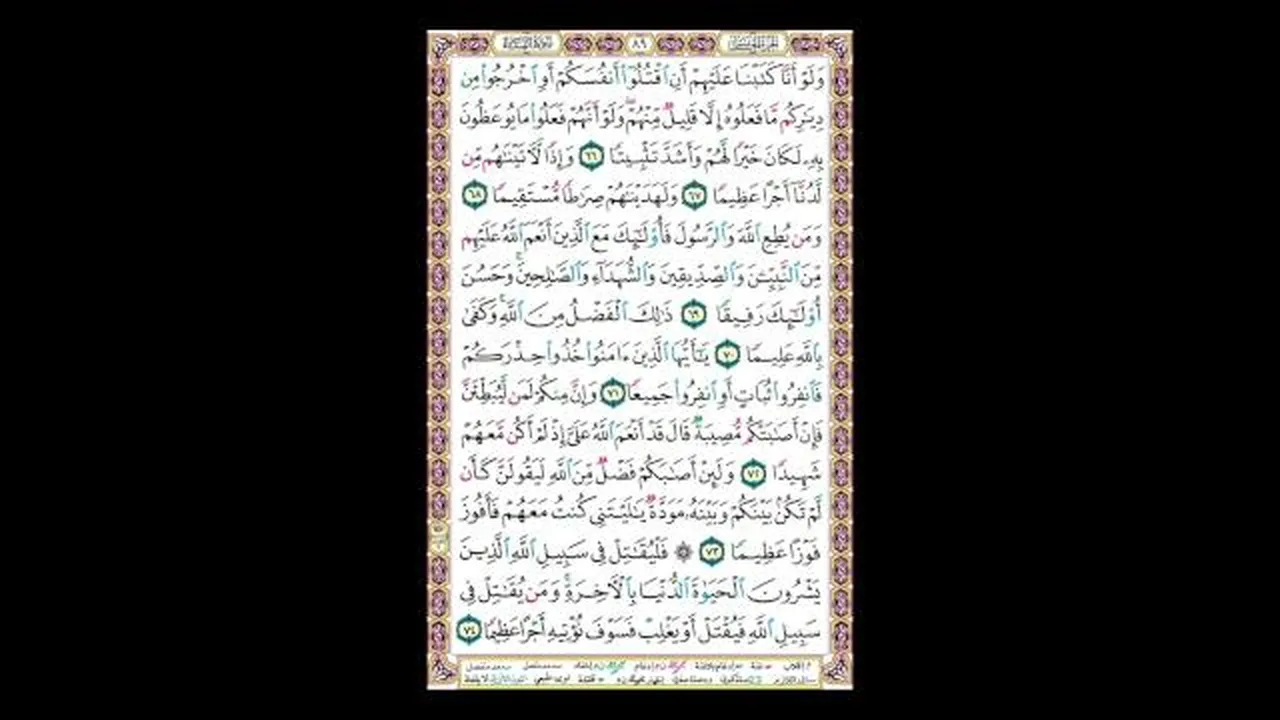 سورة النساء ٨٩ الجزء الخامس
وَلَوْ أَنَّا كَتَبْنَا عَلَيْهِمْ أَنِ ٱقْتُلُوٓا۟ أَنفُسَكُمْ أَوِ ٱخْرُجُوا۟ مِن
دِيَـٰرِكُم مَّا فَعَلُوهُ إِلَّا قَلِيلٌ مِّنْهُمْ ۖ وَلَوْ أَنَّهُمْ فَعَلُوا۟ مَا يُوعَظُونَ
بِهِۦ لَكَانَ خَيْرًا لَّهُمْ وَأَشَدَّ تَثْبِيتًا ٦٦ وَإِذًا لَّـَٔاتَيْنَـٰهُم مِّن
لَّدُنَّآ أَجْرًا عَظِيمًا ٦٧ وَلَهَدَيْنَـٰهُمْ صِرَٰطًا مُّسْتَقِيمًا ٦٨
وَمَن يُطِعِ ٱللَّهَ وَٱلرَّسُولَ فَأُو۟لَـٰٓئِكَ مَعَ ٱلَّذِينَ أَنْعَمَ ٱللَّهُ عَلَيْهِم
مِّنَ ٱلنَّبِيِّـۧنَ وَٱلصِّدِّيقِينَ وَٱلشُّهَدَآءِ وَٱلصَّـٰلِحِينَ ۚ وَحَسُنَ
أُو۟لَـٰٓئِكَ رَفِيقًا ٦٩ ذَٰلِكَ ٱلْفَضْلُ مِنَ ٱللَّهِ ۚ وَكَفَىٰ
بِٱللَّهِ عَلِيمًا ٧٠ يَـٰٓأَيُّهَا ٱلَّذِينَ ءَامَنُوا۟ خُذُوا۟ حِذْرَكُمْ
فَٱنفِرُوا۟ ثُبَاتٍ أَوِ ٱنفِرُوا۟ جَمِيعًا ٧١ وَإِنَّ مِنكُمْ لَمَن لَّيُبَطِّئَنَّ
فَإِنْ أَصَـٰبَتْكُم مُّصِيبَةٌ قَالَ قَدْ أَنْعَمَ ٱللَّهُ عَلَىَّ إِذْ لَمْ أَكُن مَّعَهُمْ
شَهِيدًا ٧٢ وَلَئِنْ أَصَـٰبَكُمْ فَضْلٌ مِّنَ ٱللَّهِ لَيَقُولَنَّ كَأَن
لَّمْ تَكُنۢ بَيْنَكُمْ وَبَيْنَهُۥ مَوَدَّةٌ يَـٰلَيْتَنِى كُنتُ مَعَهُمْ فَأَفُوزَ
فَوْزًا عَظِيمًا ٧٣ ۞ فَلْيُقَـٰتِلْ فِى سَبِيلِ ٱللَّهِ ٱلَّذِينَ
يَشْرُونَ ٱلْحَيَوٰةَ ٱلدُّنْيَا بِٱلْـَٔاخِرَةِ ۚ وَمَن يُقَـٰتِلْ فِى
سَبِيلِ ٱللَّهِ فَيُقْتَلْ أَوْ يَغْلِبْ فَسَوْفَ نُؤْتِيهِ أَجْرًا عَظِيمًا ٧٤